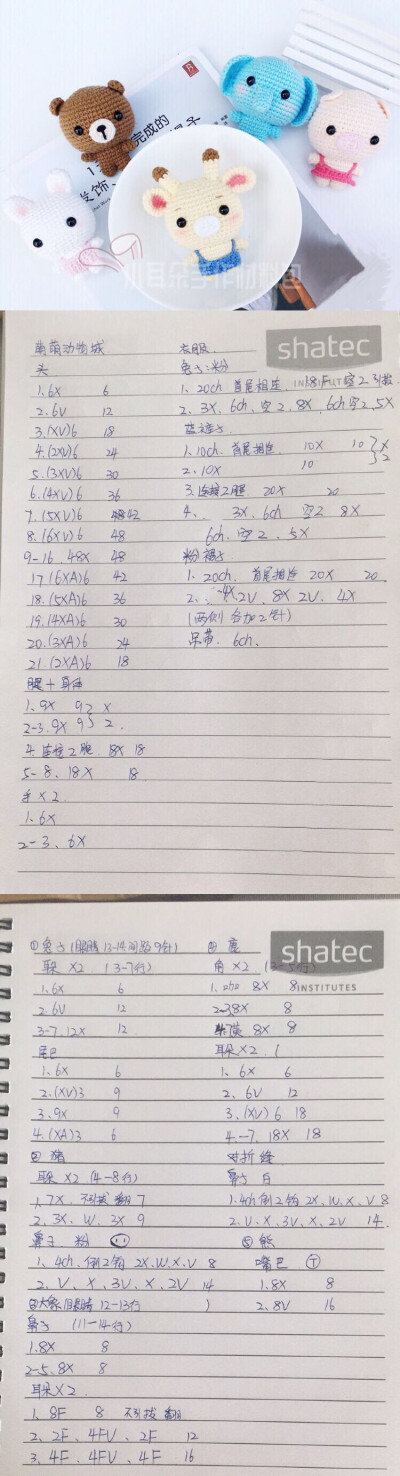 完成的
小耳朵手作材料包
shatec
INSTITUTES
萌萌动物城
头
1.6X 6
2.6V 12
3.(XV)6 18
4.(2XV)6 24
5.(3XV)6 30
6.(4XV)6 36
7.(5XV)6 42
8.(6XV)6 48
9-16.48X 48
17.(6XA)6 42
18.(5XA)6 36
19.(4XA)6 30
20.(3XA)6 24
21.(2XA)6 18
腿+身体
1.9X 9
2-3.9X 9 } X2.
4.连接2腿 18X 18
5-8.18X 18
手X2
1.6X
2-3.6X
衣服.
兔子:粉
1.20ch 首尾相连.
2.3X,6ch,空2,8X,6ch空2,5X
蓝裤子
1.10ch.首尾相连 10X 10
2.10X 10 } X2
3.连接2腿 20X 20
4. 3X,6ch,空2 8X
6ch.空2,5X
粉裙子
1.20ch.首尾相连 20X 20
2. 4X 2V,8X 2V.4X
(两侧各加2针)
吊带.6ch.
shatec
INSTITUTES
①兔子(眼睛13-14间距9针)
耳朵X2 (3-7行)
1.6X 6
2.6V 12
3-7.12X 12
尾巴
1.6X 6
2.(XV)3 9
3.9X 9
4.(XA)3 6
猪
耳朵X2 (4-8行)
1.7X.不引拔翻 7
2.3X,W,3X 9
鼻子 粉
1.4ch.倒2钩 2X,W,X,V 8
2.V,X,3V,X,2V 14
大象(眼睛12-13行)
鼻子 (11-14行)
1.8X 8
2-5.8X 8
耳朵X2.
1.8F 8 不引拔翻
2.2F,4FV,2F 12
3.4F,4FV,4F 16
鹿
角X2.
8X 8
8X 8
黄 8X 8
耳朵X2.
1.6X 6
2.6V 12
3.(XV)6 18
4-7.18X 18
对折缝
鼻子 白
1.4ch倒2钩2X,W,X,V 8
2.V,X,3V,X,2V 14.
⑤熊
嘴巴 T
1.8X 8
2.8V 16